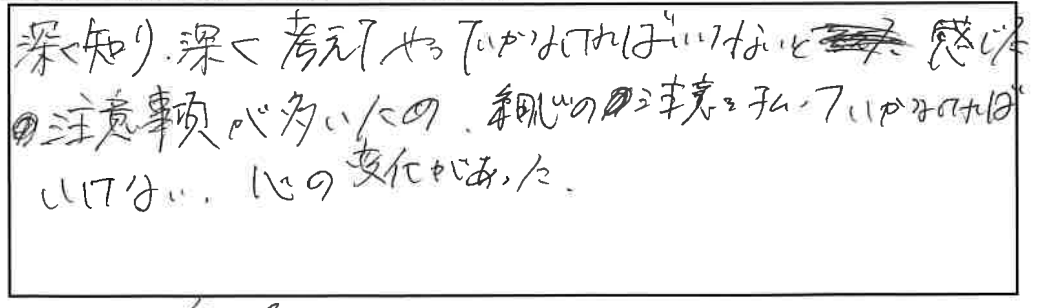 深く知り、深く考えてやっていかなければいけないと感じた
注意事項が多いため、細心の注意を払っていかなければ
いけない。心の変化があった。